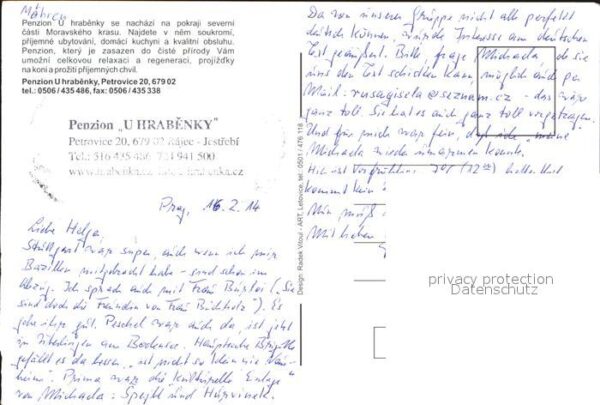 Mähren
Penzion U hraběnky se nachází na pokraji severní
části Moravského krasu. Najdete v něm soukromí,
příjemné ubytování, domácí kuchyni a kvalitní obsluhu.
Penzion, který je zasazen do čisté přírody Vám
umožní celkovou relaxaci a regeneraci, projížďky
na koni a prožití příjemných chvil.
Penzion U hraběnky, Petrovice 20, 679 02
tel.: 0506 / 435 486, fax: 0506 / 435 338
Penzion „U HRABĚNKY"
Petrovice 20, 679 02 Rájec - Jestřebí
Tel.: 516 435 486, 941 500
Prag, 16.2.14
Liebe Helga,
Stuttgart war super, auch wenn ich mir
Bazillen mitgebracht habe - sind schon im
Abzug. Ich sprach auch mit Frau
sind doch die Freundin von Frau Buchholz"). Es
gehe ihr gut. Peschel war auch da, ist jetzt
in am Bodensee.
gefällt es da besser, "ist nicht so
Prima war die kulturelle Einlage
von Michaela: Speybl und Hurvinek.
Da von unserer Gruppe nicht alle perfekt
deutsch können, wurde Interesse am deutschen
Text geäußert. Bitte frage Michaela, ob sie
uns den Text schicken kann, möglich auch per
Mail: rusagisela@seznam.cz - das wäre
ganz toll. Sie hat es auch ganz toll vorgetragen.
Und für mich war fein, daß ich "meine"
Michaela wieder umarmen konnte.
Hier ist Vorfrühling 10°
kommt kein
Design: Radek Vitoul - ART, Letovice, tel.: 0501 / 476 118
privacy protection
Datenschutz